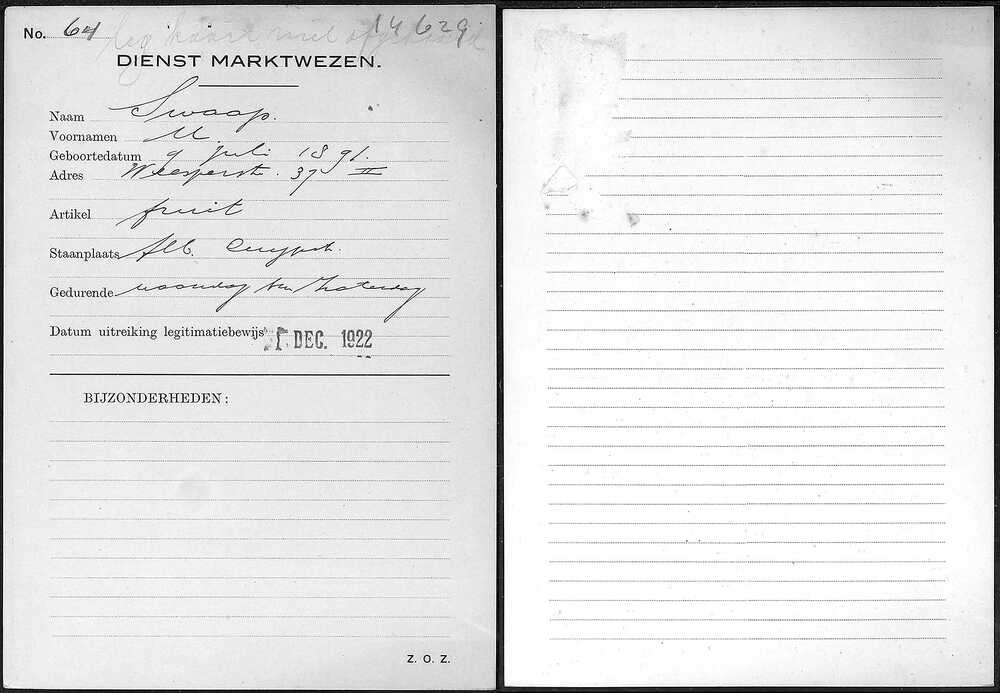 No. 64 14629
leg kaart niet afgehaald
DIENST MARKTWEZEN.
Naam Swaap.
Voornamen M.
Geboortedatum 9 juli 1891.
Adres Weesperst. 37 II
Artikel fruit
Staanplaats Alb. Cuypst.
Gedurende maandag t/m Zaterdag
Datum uitreiking legitimatiebewijs 1 DEC. 1922
BIJZONDERHEDEN:
Z. O. Z.